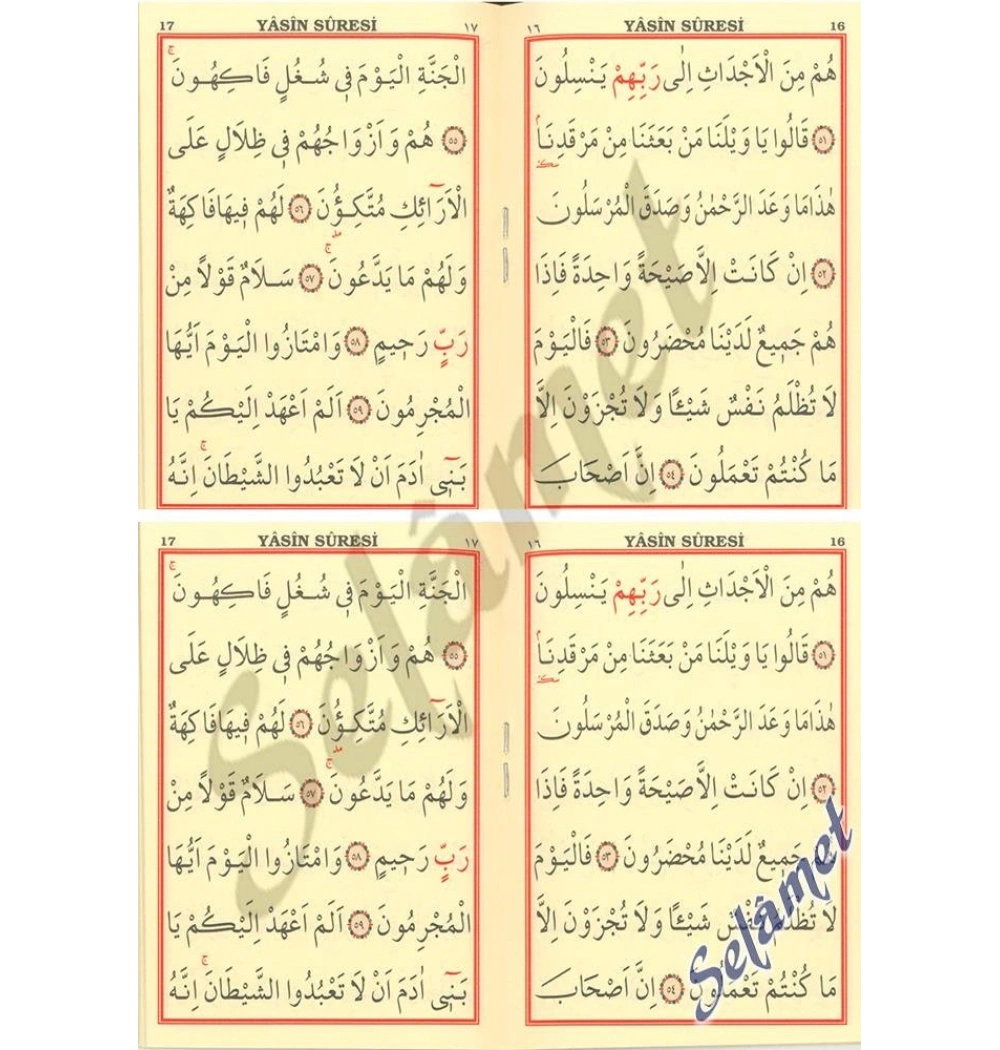 YÂSÎN SÛRESİ 16
١٦
هُمْ مِنَ الْاَجْدَاثِ اِلٰى رَبِّهِمْ يَنْسِلُونَ
﴿٥١﴾ قَالُوا يَا وَيْلَنَا مَنْ بَعَثَنَا مِنْ مَرْقَدِنَا
هٰذَا مَا وَعَدَ الرَّحْمٰنُ وَصَدَقَ الْمُرْسَلُونَ
﴿٥٢﴾ اِنْ كَانَتْ اِلَّا صَيْحَةً وَاحِدَةً فَاِذَا
هُمْ جَمِيعٌ لَدَيْنَا مُحْضَرُونَ ﴿٥٣﴾ فَالْيَوْمَ
لَا تُظْلَمُ نَفْسٌ شَيْـًٔا وَلَا تُجْزَوْنَ اِلَّا
مَا كُنْتُمْ تَعْمَلُونَ ﴿٥٤﴾ اِنَّ اَصْحَابَ
17 YÂSÎN SÛRESİ ١٧
الْجَنَّةِ الْيَوْمَ فِى شُغُلٍ فَاكِهُونَ
﴿٥٥﴾ هُمْ وَاَزْوَاجُهُمْ فِى ظِلَالٍ عَلَى
الْاَرَٓائِكِ مُتَّكِـُٔونَ ﴿٥٦﴾ لَهُمْ فِيهَا فَاكِهَةٌ
وَلَهُمْ مَا يَدَّعُونَ ﴿٥٧﴾ سَلَامٌ قَوْلًا مِنْ
رَبٍّ رَحِيمٍ ﴿٥٨﴾ وَامْتَازُوا الْيَوْمَ اَيُّهَا
الْمُجْرِمُونَ ﴿٥٩﴾ اَلَمْ اَعْهَدْ اِلَيْكُمْ يَا
بَنِٓى اٰدَمَ اَنْ لَا تَعْبُدُوا الشَّيْطَانَ اِنَّهُ
YÂSÎN SÛRESİ 16
١٦
هُمْ مِنَ الْاَجْدَاثِ اِلٰى رَبِّهِمْ يَنْسِلُونَ
﴿٥١﴾ قَالُوا يَا وَيْلَنَا مَنْ بَعَثَنَا مِنْ مَرْقَدِنَا
هٰذَا مَا وَعَدَ الرَّحْمٰنُ وَصَدَقَ الْمُرْسَلُونَ
﴿٥٢﴾ اِنْ كَانَتْ اِلَّا صَيْحَةً وَاحِدَةً فَاِذَا
هُمْ جَمِيعٌ لَدَيْنَا مُحْضَرُونَ ﴿٥٣﴾ فَالْيَوْمَ
لَا تُظْلَمُ نَفْسٌ شَيْـًٔا وَلَا تُجْزَوْنَ اِلَّا
مَا كُنْتُمْ تَعْمَلُونَ ﴿٥٤﴾ اِنَّ اَصْحَابَ
17 YÂSÎN SÛRESİ ١٧
الْجَنَّةِ الْيَوْمَ فِى شُغُلٍ فَاكِهُونَ
﴿٥٥﴾ هُمْ وَاَزْوَاجُهُمْ فِى ظِلَالٍ عَلَى
الْاَرَٓائِكِ مُتَّكِـُٔونَ ﴿٥٦﴾ لَهُمْ فِيهَا فَاكِهَةٌ
وَلَهُمْ مَا يَدَّعُونَ ﴿٥٧﴾ سَلَامٌ قَوْلًا مِنْ
رَبٍّ رَحِيمٍ ﴿٥٨﴾ وَامْتَازُوا الْيَوْمَ اَيُّهَا
الْمُجْرِمُونَ ﴿٥٩﴾ اَلَمْ اَعْهَدْ اِلَيْكُمْ يَا
بَنِٓى اٰدَمَ اَنْ لَا تَعْبُدُوا الشَّيْطَانَ اِنَّهُ
Selâmet
Selâmet